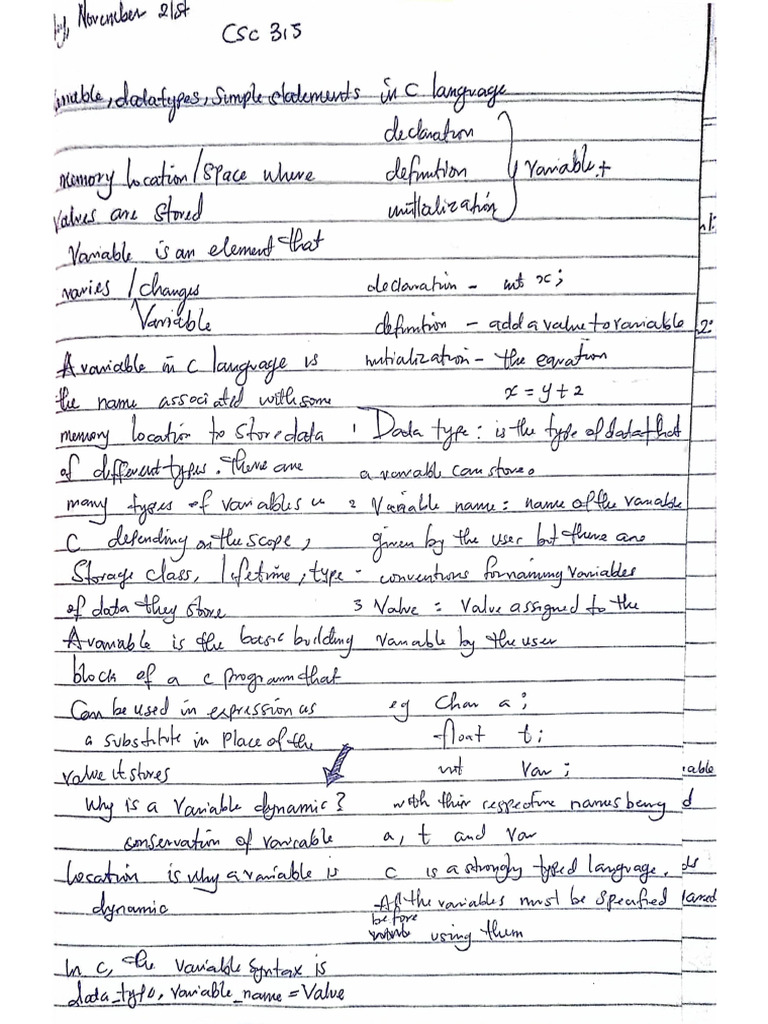 by, November 21st
CSC 315
variable, datatypes, simple statements in C language
memory location/space where
values are stored
Variable is an element that
varies / changes
Variable
A variable in C language is
the name associated with some
memory location to store data
of different types. There are
many types of variables in
C depending on the scope,
Storage class, lifetime, type
of data they store
A variable is the basic building
block of a c program that
Can be used in expression as
a substitute in place of the
value it stores
Why is a variable dynamic?
conservation of variable
location is why a variable is
dynamic
In c, the variable syntax is
data_type, variable_name = Value
declaration
definition
initialization
} variable +
declaration - int x;
definition - add a value to variable
initialization - the equation
x = y + 2
1 Data type: is the type of data that
a variable can store.
2 Variable name: name of the variable
given by the user but there are
- conventions for naming variables
3 Value = Value assigned to the
variable by the user
eg Char a;
float t;
int Var;
with their respective names being
a, t and var
C is a strongly typed language.
All the variables must be specified
before
using them
2:
able
d
ds